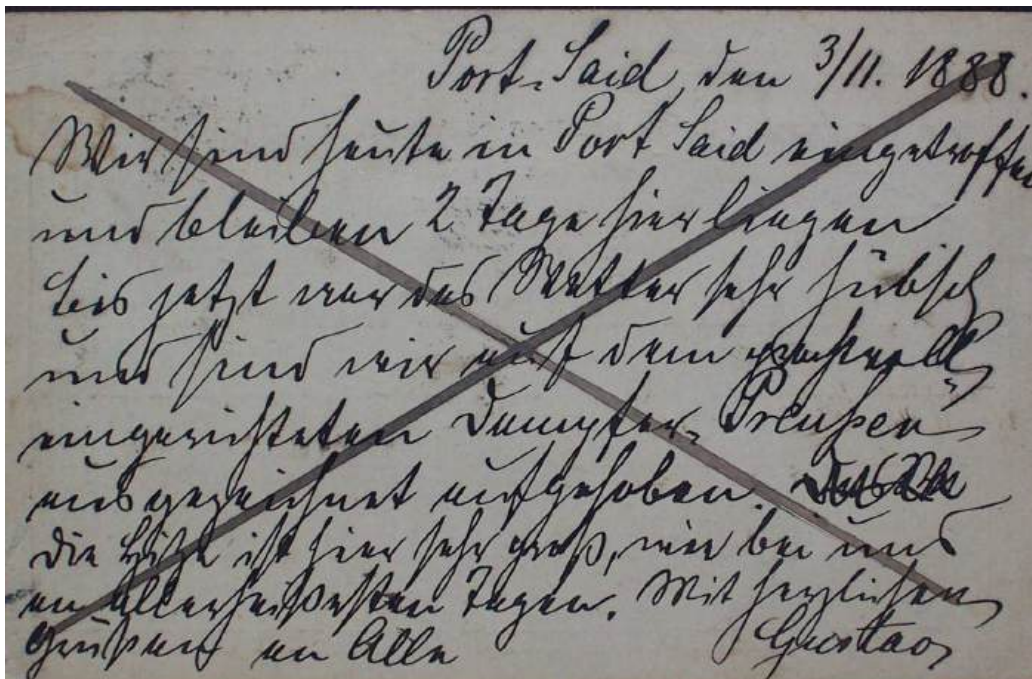 Port-Said, den 3/11. 1888.
Wir sind heute in Port Said eingetroffen
und bleiben 2 Tage hier liegen
bis jetzt war das Wetter sehr hübsch
und sind wir auf dem prachtvoll
eingerichteten Dampfer „Preußen“
ausgezeichnet aufgehoben.
Die Hitze ist hier sehr groß, wie bei uns
an allerheißesten Tagen. Mit herzlichen
Grüßen an Alle Gustav